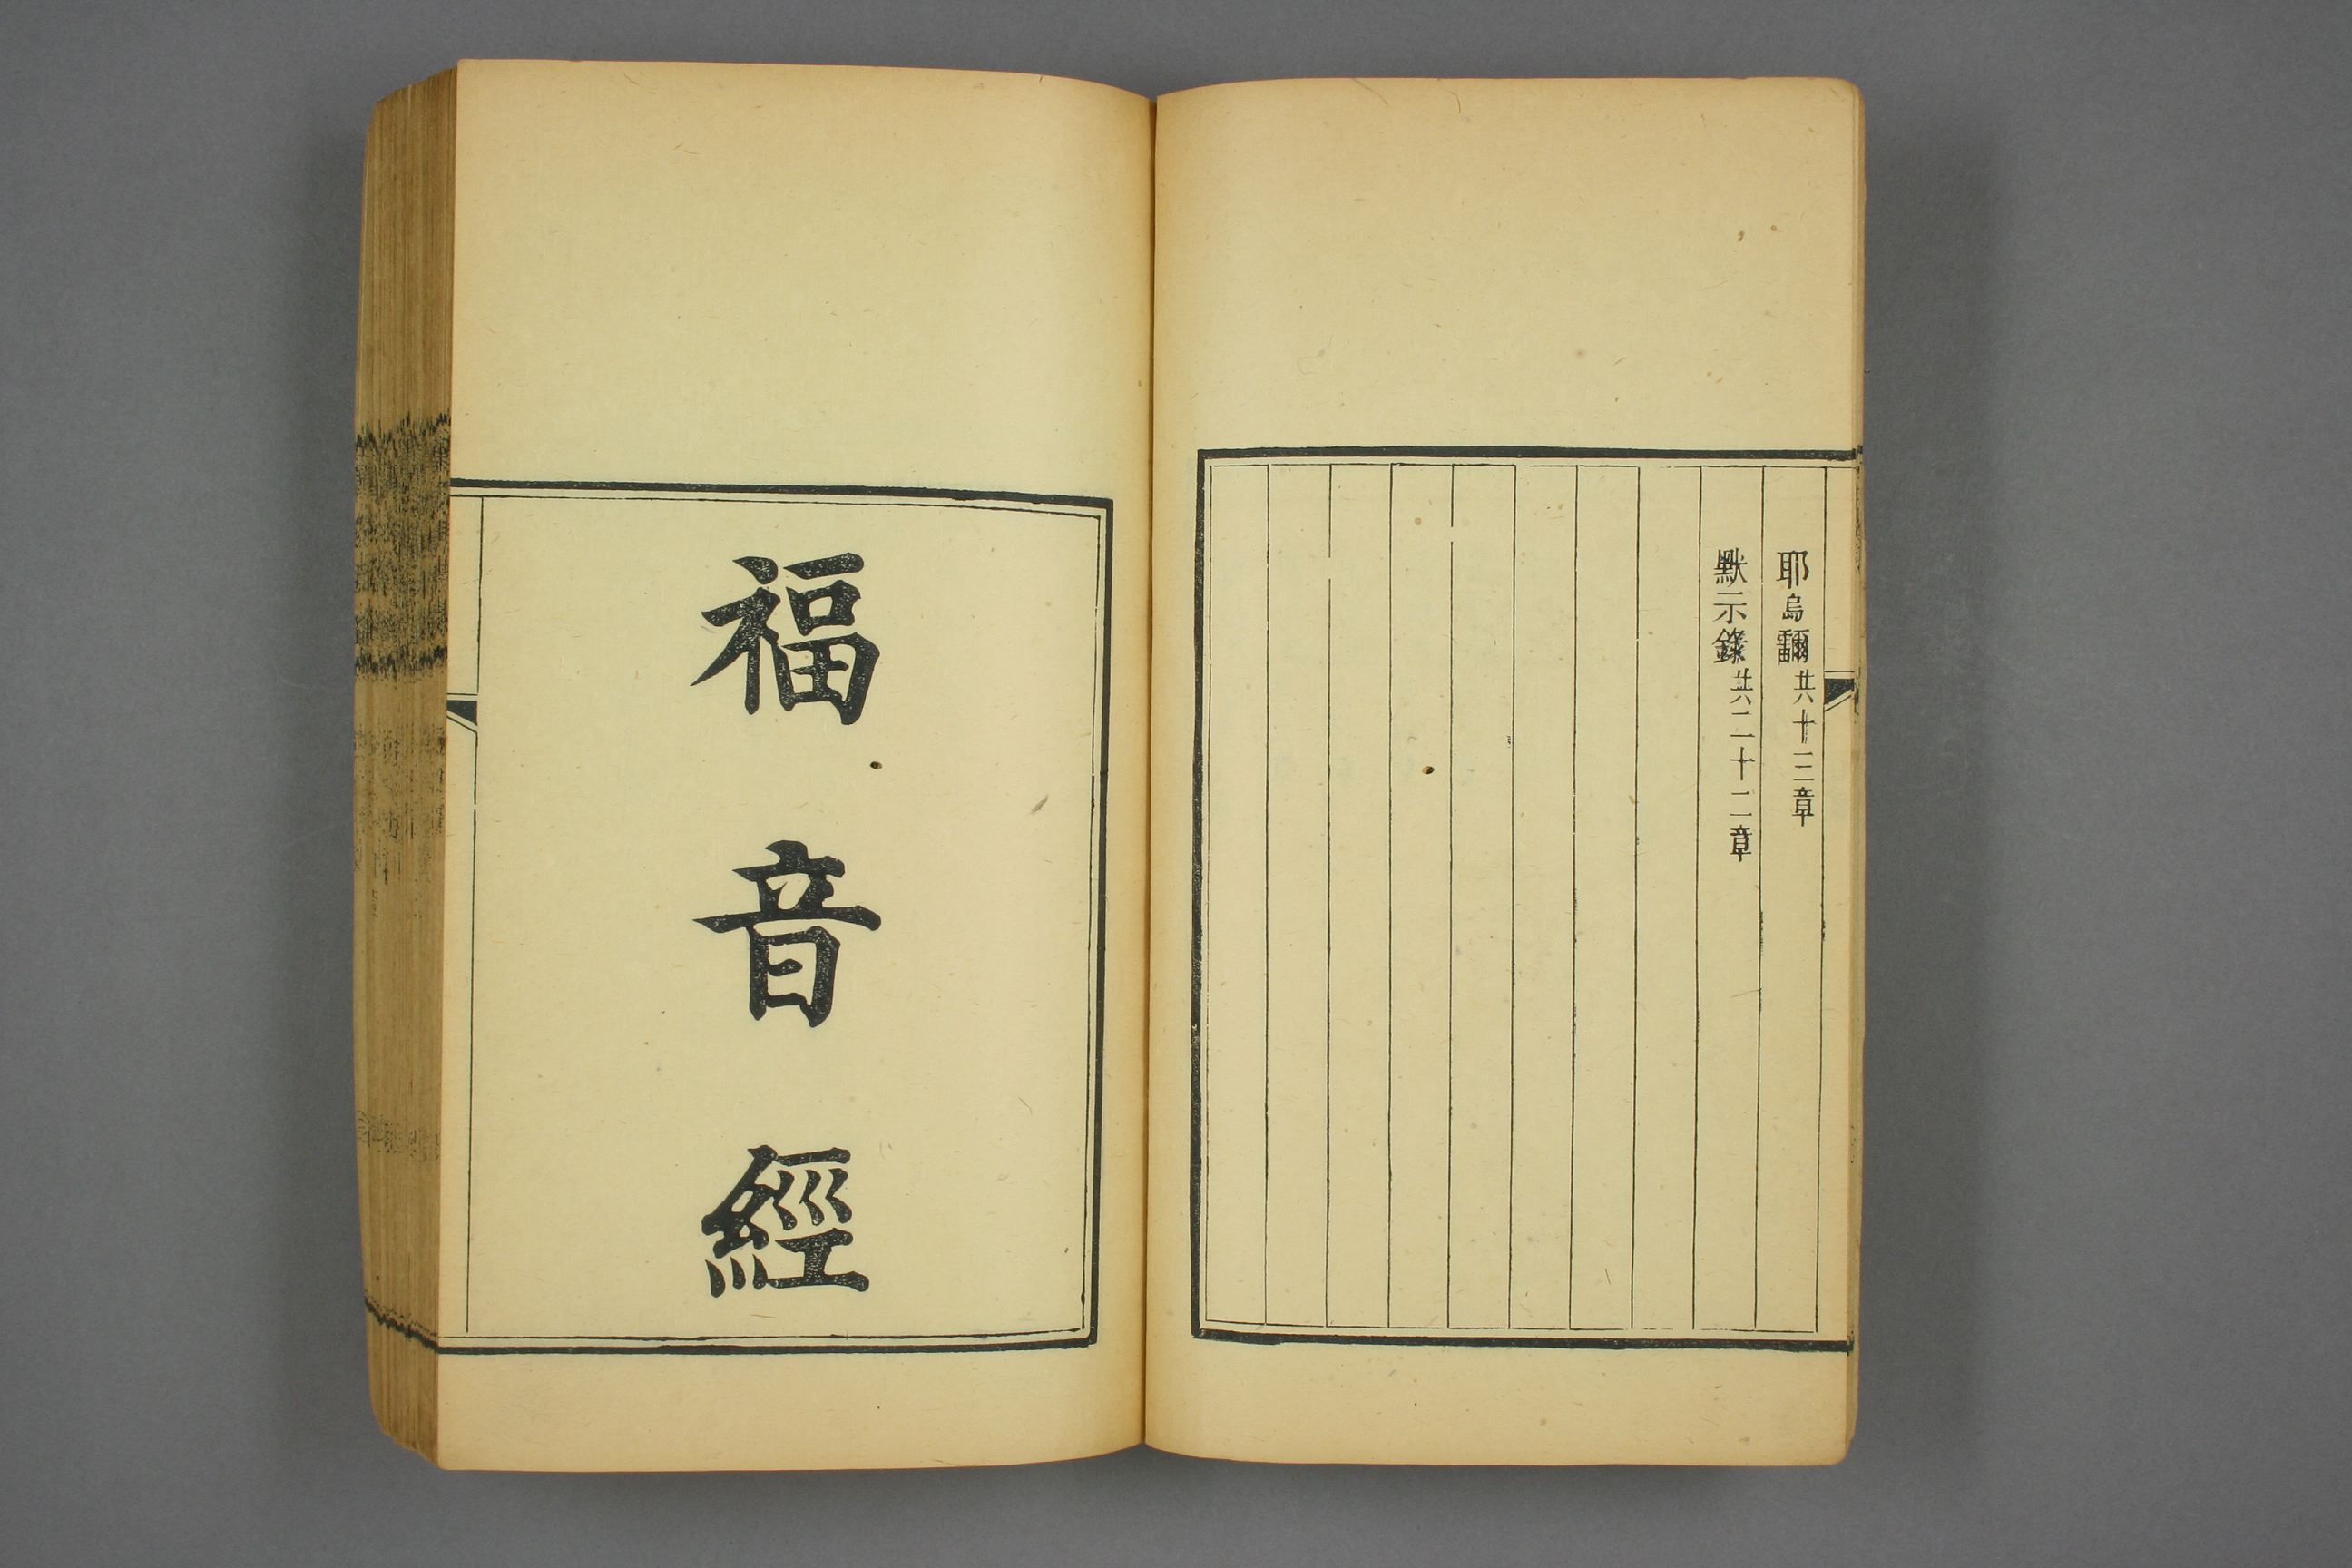 耶烏 共十三章
默示錄共二十二章
福音經